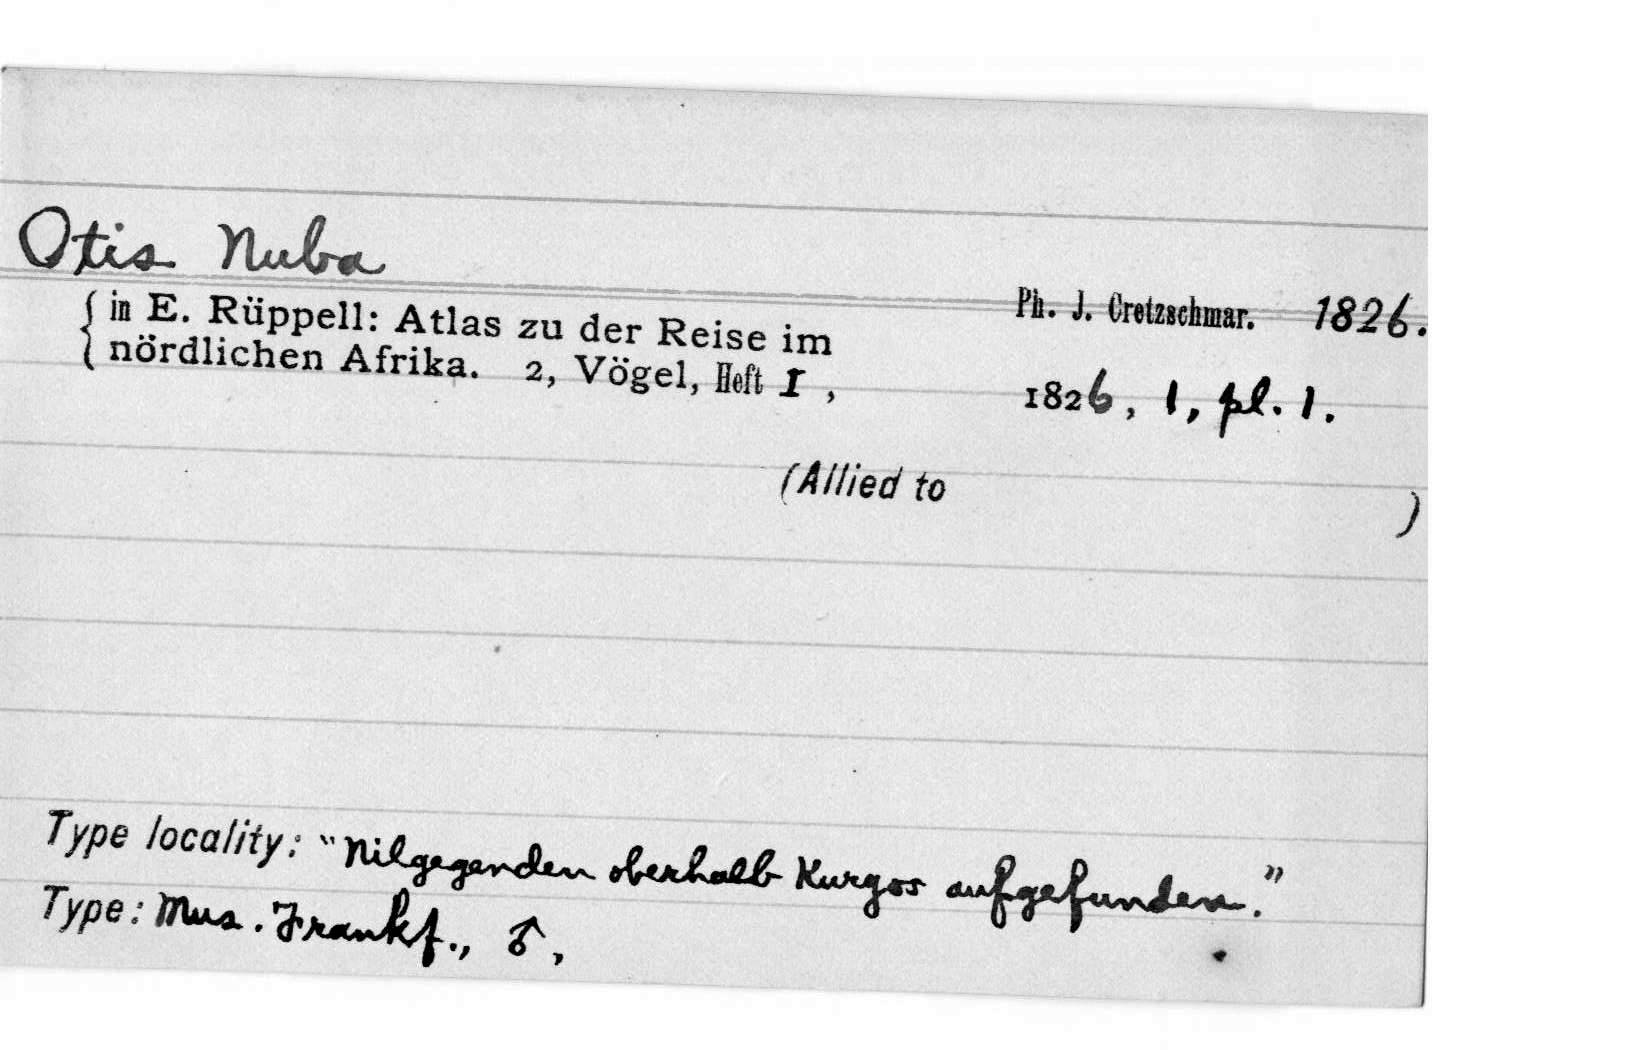 Otis Nuba
Ph. J. Cretzschmar. 1826.
{ in E. Rüppell: Atlas zu der Reise im
{ nördlichen Afrika. 2, Vögel, Heft I , 1826, 1, pl. 1.
(Allied to )
Type locality: "Nilgegenden oberhalb Kurgos aufgefunden."
Type: Mus. Frankf., ♂,